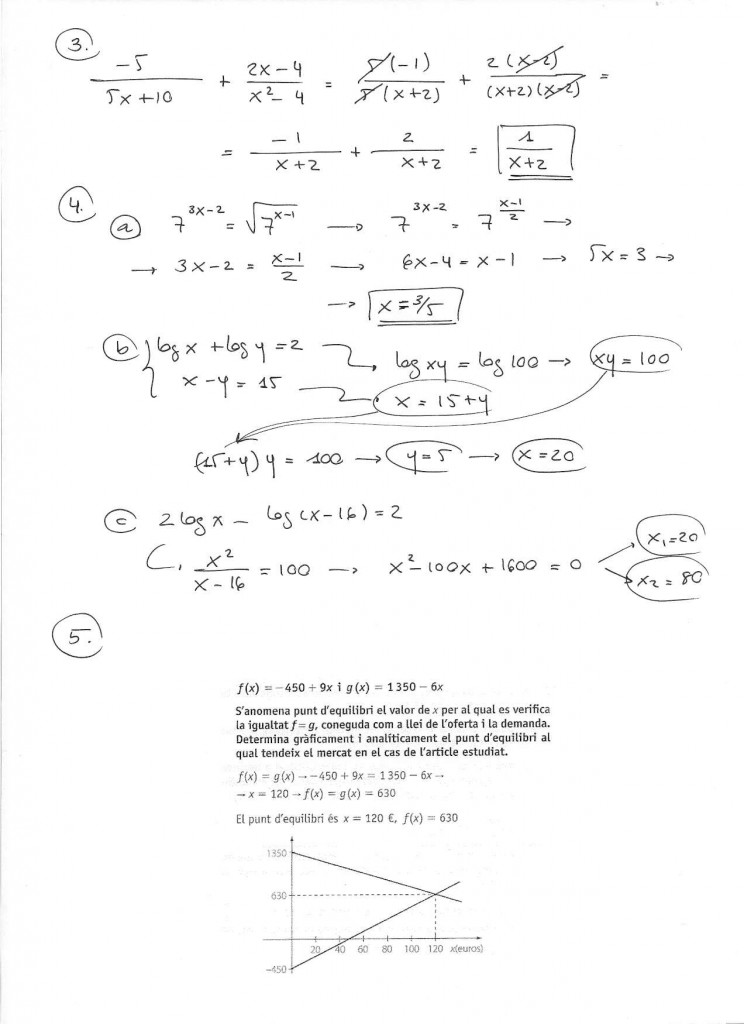 3.
-5/(5x+10) + (2x-4)/(x²-4) = 5(-1)/(5(x+2)) + 2(x-2)/((x+2)(x-2)) =
= -1/(x+2) + 2/(x+2) = 1/(x+2)
4.
a) 7^(3x-2) = √(7^(x-1)) → 7^(3x-2) = 7^((x-1)/2) →
→ 3x-2 = (x-1)/2 → 6x-4 = x-1 → 5x = 3 →
→ x = 3/5
b) log x + log y = 2 log xy = log 100 → xy = 100
x - y = 15 x = 15+y
(15+y) y = 100 → y = 5 → x = 20
c) 2 log x - log (x-16) = 2
x²/(x-16) = 100 → x² - 100x + 1600 = 0 x₁ = 20
x₂ = 80
5.
f(x) = -450 + 9x i g(x) = 1350 - 6x
S'anomena punt d'equilibri el valor de x per al qual es verifica
la igualtat f = g, coneguda com a llei de l'oferta i la demanda.
Determina gràficament i analíticament el punt d'equilibri al
qual tendeix el mercat en el cas de l'article estudiat.
f(x) = g(x) → -450 + 9x = 1350 - 6x →
→ x = 120 → f(x) = g(x) = 630
El punt d'equilibri és x = 120 €, f(x) = 630
1350
630
20 40 60 80 100 120 x(euros)
-450